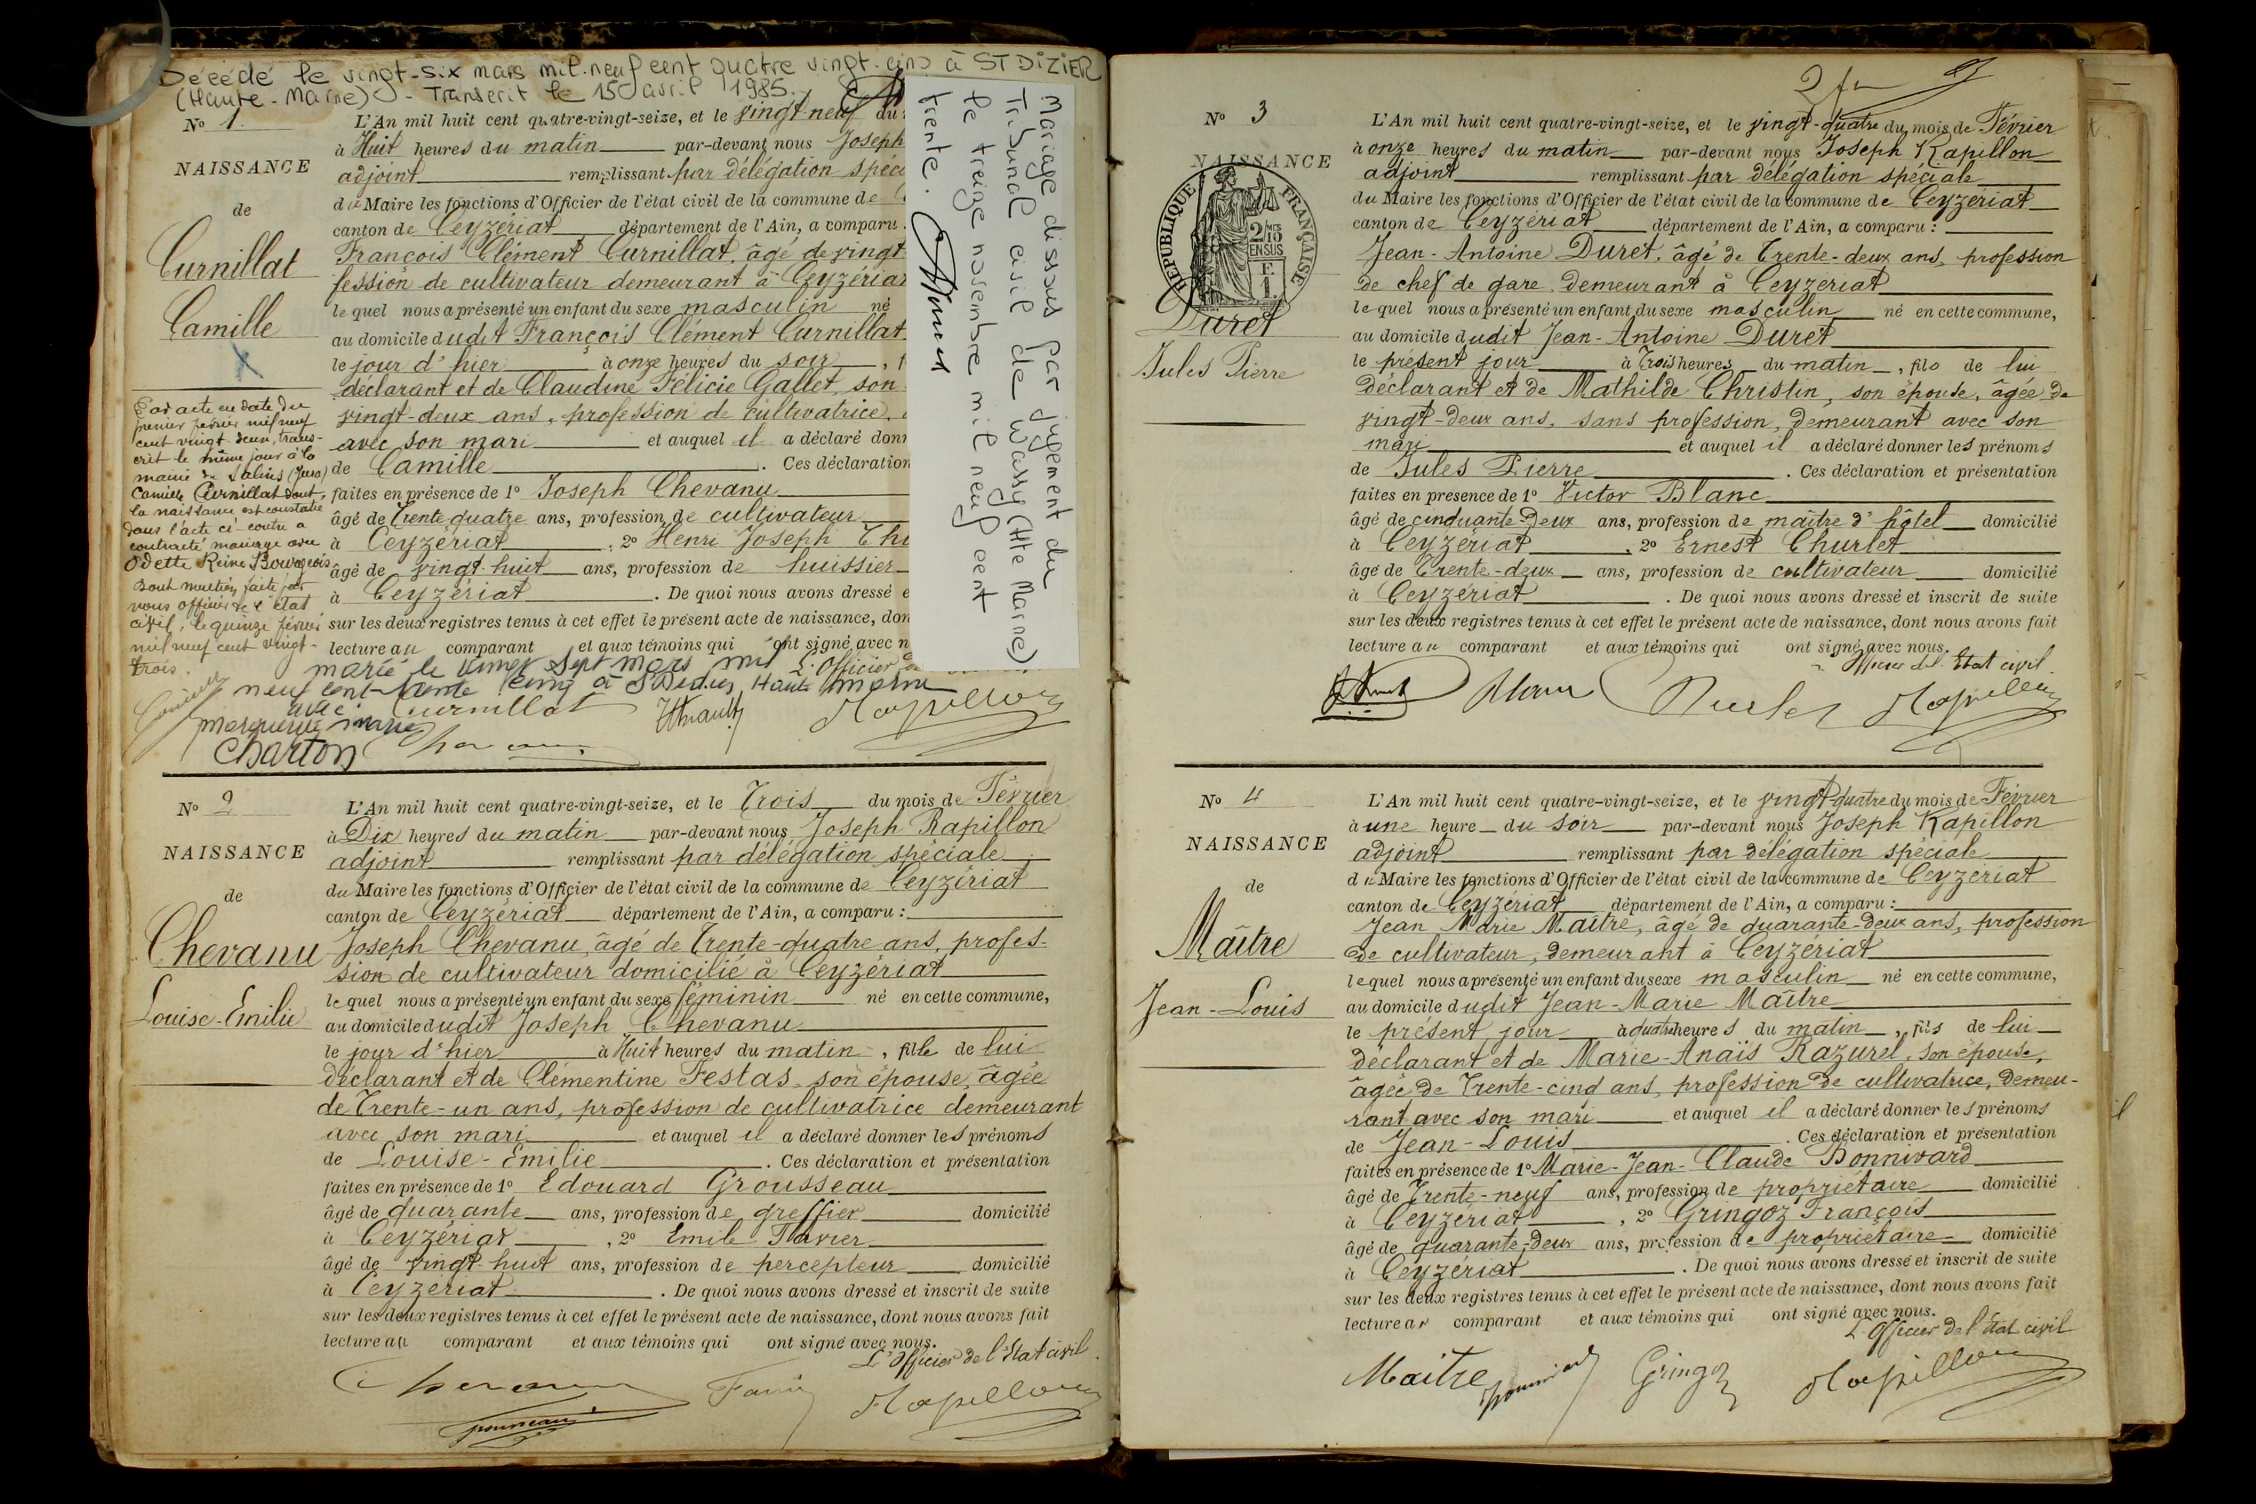 Décédé le vingt-six mars mil-neuf cent quatre vingt-cinq à ST DIZIER
(Haute-Marne) - Transcrit le 15 avril 1985.
No 1.
NAISSANCE
de
Curnillat
Camille
L'An mil huit cent quatre-vingt-seize, et le vingt-neuf du
à Huit heures du matin par-devant nous Joseph
adjoint remplissant par délégation spéci
du Maire les fonctions d'Officier de l'état civil de la commune de
canton de Ceyzériat département de l'Ain, a comparu
François Clément Curnillat, âgé de vingt
fession de cultivateur demeurant à Ceyzériat
lequel nous a présenté un enfant du sexe masculin né
au domicile dudit François Clément Curnillat
le jour d'hier à onze heures du soir, f
déclarant et de Claudine Félicie Gallet, son
vingt-deux ans, profession de cultivatrice,
avec son mari et auquel il a déclaré donn
de Camille. Ces déclaration
faites en présence de 1° Joseph Chevanu
âgé de Trente quatre ans, profession de cultivateur
à Ceyzériat, 2° Henri Joseph Th
âgé de vingt-huit ans, profession de huissier
à Ceyzériat. De quoi nous avons dressé e
sur les deux registres tenus à cet effet le présent acte de naissance, don
lecture au comparant et aux témoins qui ont signé avec n
L'Officier
Par acte en date du
premier février mil neuf
cent vingt-deux, trans-
crit le même jour à la
mairie de Salins (Jura)
Camille Curnillat dont
la naissance est constatée
dans l'acte ci-contre a
contracté mariage avec
Odette Reine Bourgeois
Dont mention faite par
nous officier de l'état
civil, le quinze février
mil neuf cent vingt-
trois.
marié le vingt sept mars mil
neuf cent-trente cinq à St Dizier, Haute Marne
avec
Marguerite Marie
Charton
Curnillat
Thuault
Rapillon
Chevanu
Mariage dissous par jugement du
Tribunal civil de Wassy (Hte Marne)
le treize novembre mil neuf cent
trente.
No 2
NAISSANCE
de
Chevanu
Louise-Emilie
L'An mil huit cent quatre-vingt-seize, et le Trois du mois de Février
à Dix heures du matin par-devant nous Joseph Rapillon
adjoint remplissant par délégation spéciale
du Maire les fonctions d'Officier de l'état civil de la commune de Ceyzériat
canton de Ceyzériat département de l'Ain, a comparu :
Joseph Chevanu, âgé de Trente-quatre ans, profes-
sion de cultivateur domicilié à Ceyzériat
lequel nous a présenté un enfant du sexe féminin né en cette commune,
au domicile dudit Joseph Chevanu
le jour d'hier à Huit heures du matin, fille de lui
déclarant et de Clémentine Festas, son épouse, âgée
de Trente-un ans, profession de cultivatrice demeurant
avec son mari et auquel il a déclaré donner les prénoms
de Louise-Emilie. Ces déclaration et présentation
faites en présence de 1° Edouard Grousseau
âgé de quarante ans, profession de greffier domicilié
à Ceyzériat, 2° Emile Favier
âgé de vingt-huit ans, profession de percepteur domicilié
à Ceyzériat. De quoi nous avons dressé et inscrit de suite
sur les deux registres tenus à cet effet le présent acte de naissance, dont nous avons fait
lecture au comparant et aux témoins qui ont signé avec nous.
L'Officier de l'Etat civil.
Chevanu
Favier
Rapillon
No 3
NAISSANCE
REPUBLIQUE FRANÇAISE
2/10
EN SUS
Duret
Jules Pierre
L'An mil huit cent quatre-vingt-seize, et le vingt-quatre du mois de Février
à onze heures du matin par-devant nous Joseph Rapillon
adjoint remplissant par délégation spéciale
du Maire les fonctions d'Officier de l'état civil de la commune de Ceyzériat
canton de Ceyzériat département de l'Ain, a comparu :
Jean-Antoine Duret, âgé de Trente-deux ans, profession
de chef de gare, demeurant à Ceyzériat
lequel nous a présenté un enfant du sexe masculin né en cette commune,
au domicile dudit Jean-Antoine Duret
le présent jour à Trois heures du matin, fils de lui
déclarant et de Mathilde Christin, son épouse, âgée de
vingt-deux ans, sans profession, demeurant avec son
mari et auquel il a déclaré donner les prénoms
de Jules Pierre. Ces déclaration et présentation
faites en présence de 1° Victor Blanc
âgé de cinquante-deux ans, profession de maître d'hôtel domicilié
à Ceyzériat, 2° Ernest Churlet
âgé de Trente-deux ans, profession de cultivateur domicilié
à Ceyzériat. De quoi nous avons dressé et inscrit de suite
sur les deux registres tenus à cet effet le présent acte de naissance, dont nous avons fait
lecture au comparant et aux témoins qui ont signé avec nous.
Officier de l'Etat civil
Blanc
Churlet
Rapillon
No 4
NAISSANCE
de
Maître
Jean-Louis
L'An mil huit cent quatre-vingt-seize, et le vingt-quatre du mois de Février
à une heure du soir par-devant nous Joseph Rapillon
adjoint remplissant par délégation spéciale
du Maire les fonctions d'Officier de l'état civil de la commune de Ceyzériat
canton de Ceyzériat département de l'Ain, a comparu :
Jean Marie Maître, âgé de quarante-deux ans, profession
de cultivateur, demeurant à Ceyzériat
lequel nous a présenté un enfant du sexe masculin né en cette commune,
au domicile dudit Jean-Marie Maître
le présent jour à quatre heures du matin, fils de lui
déclarant et de Marie-Anaïs Razurel, son épouse,
âgée de Trente-cinq ans, profession de cultivatrice, demeu-
rant avec son mari et auquel il a déclaré donner les prénoms
de Jean-Louis. Ces déclaration et présentation
faites en présence de 1° Marie-Jean-Claude Bonnivard
âgé de Trente-neuf ans, profession de propriétaire domicilié
à Ceyzériat, 2° Gringoz François
âgé de quarante-deux ans, profession de propriétaire domicilié
à Ceyzériat. De quoi nous avons dressé et inscrit de suite
sur les deux registres tenus à cet effet le présent acte de naissance, dont nous avons fait
lecture au comparant et aux témoins qui ont signé avec nous.
L'Officier de l'Etat civil
Maitre
Gringoz
Rapillon